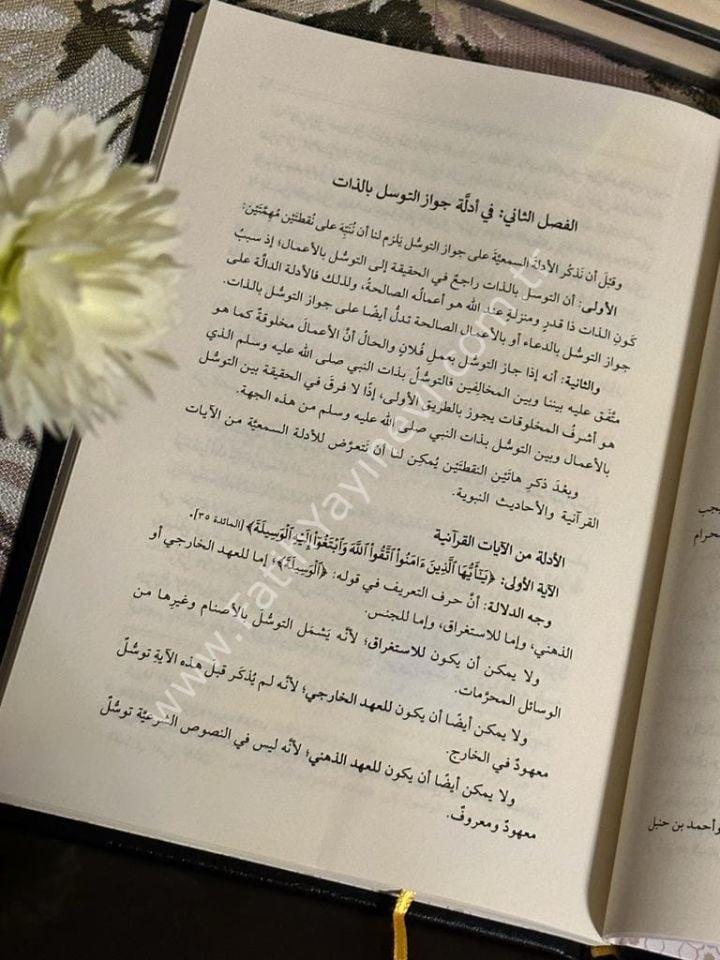 الفصل الثاني: في أدلَّة جواز التوسل بالذات
وقبْلَ أن نَذكُر الأدلةَ السمعيَّةَ على جواز التوسُّل يَلزم لنا أن نُنَبِّهَ على نُقطتَيْن مُهِمَّتَيْن:
الأولى: أن التوسل بالذات راجعٌ في الحقيقة إلى التوسُّل بالأعمال؛ إذ سببُ
كَونِ الذات ذا قدرٍ ومنزلةٍ عند الله هو أعمالُه الصالحةُ، ولذلك فالأدلة الدالَّة على
جواز التوسُّل بالدعاء أو بالأعمال الصالحة تدلُّ أيضًا على جواز التوسُّل بالذات.
والثانية: أنه إذا جاز التوسُّل بعملِ فُلانٍ والحالُ أنَّ الأعمالَ مخلوقةٌ كما هو
متَّفَق عليه بيننا وبين المخالِفين فالتوسُّلُ بذات النبي صلى الله عليه وسلم الذي
هو أشرفُ المخلوقات يجوز بالطريق الأولى، إذًا لا فرقَ في الحقيقة بين التوسُّل
بالأعمال وبين التوسُّل بذات النبي صلى الله عليه وسلم من هذه الجهة.
وبعْدَ ذكرِ هاتَيْن النقطتَيْن يُمكِن لنا أن نَتعرَّض للأدلة السمعيَّة من الآيات
القرآنية والأحاديث النبوية.
الأدلة من الآيات القرآنية
الآية الأولى: ﴿يَـٰٓأَيُّهَا ٱلَّذِينَ ءَامَنُوا۟ ٱتَّقُوا۟ ٱللَّهَ وَٱبْتَغُوٓا۟ إِلَيْهِ ٱلْوَسِيلَةَ﴾ [المائدة ٣٥].
وجه الدلالة: أنَّ حرف التعريف في قوله: ﴿ٱلْوَسِيلَةَ﴾؛ إما للعهد الخارجي أو
الذهني، وإما للاستغراق، وإما للجنس.
ولا يمكن أن يكون للاستغراق؛ لأنَّه يَشمَل التوسُّل بالأصنام وغيرِها من
الوسائل المحرَّمات.
ولا يمكن أيضًا أن يكون للعهد الخارجي؛ لأنَّه لم يُذكَر قبل هذه الآيةِ توسُّلٌ
معهودٌ في الخارج.
ولا يمكن أيضًا أن يكون للعهد الذهني؛ لأنَّه ليس في النصوص الشرعيَّة توسُّلٌ
معهودٌ ومعروفٌ.
يجب
حرام
وأحمد بن حنبل
www.FatihYayinevi.com.tr